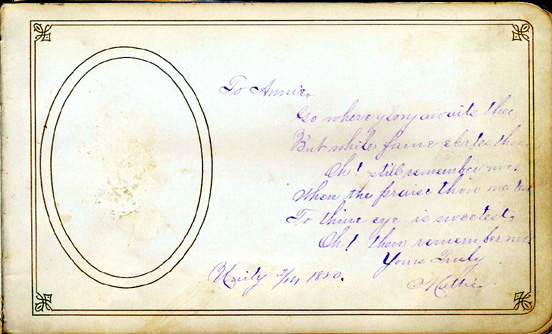 To Annie,
Go where glory awaits thee
But while fame elates thee
Oh! still remember me,
When the praise thou
To thine ear is sweetest,
Oh! then remember me
Yours Truly
Mattie
Unity 7/14 1880.